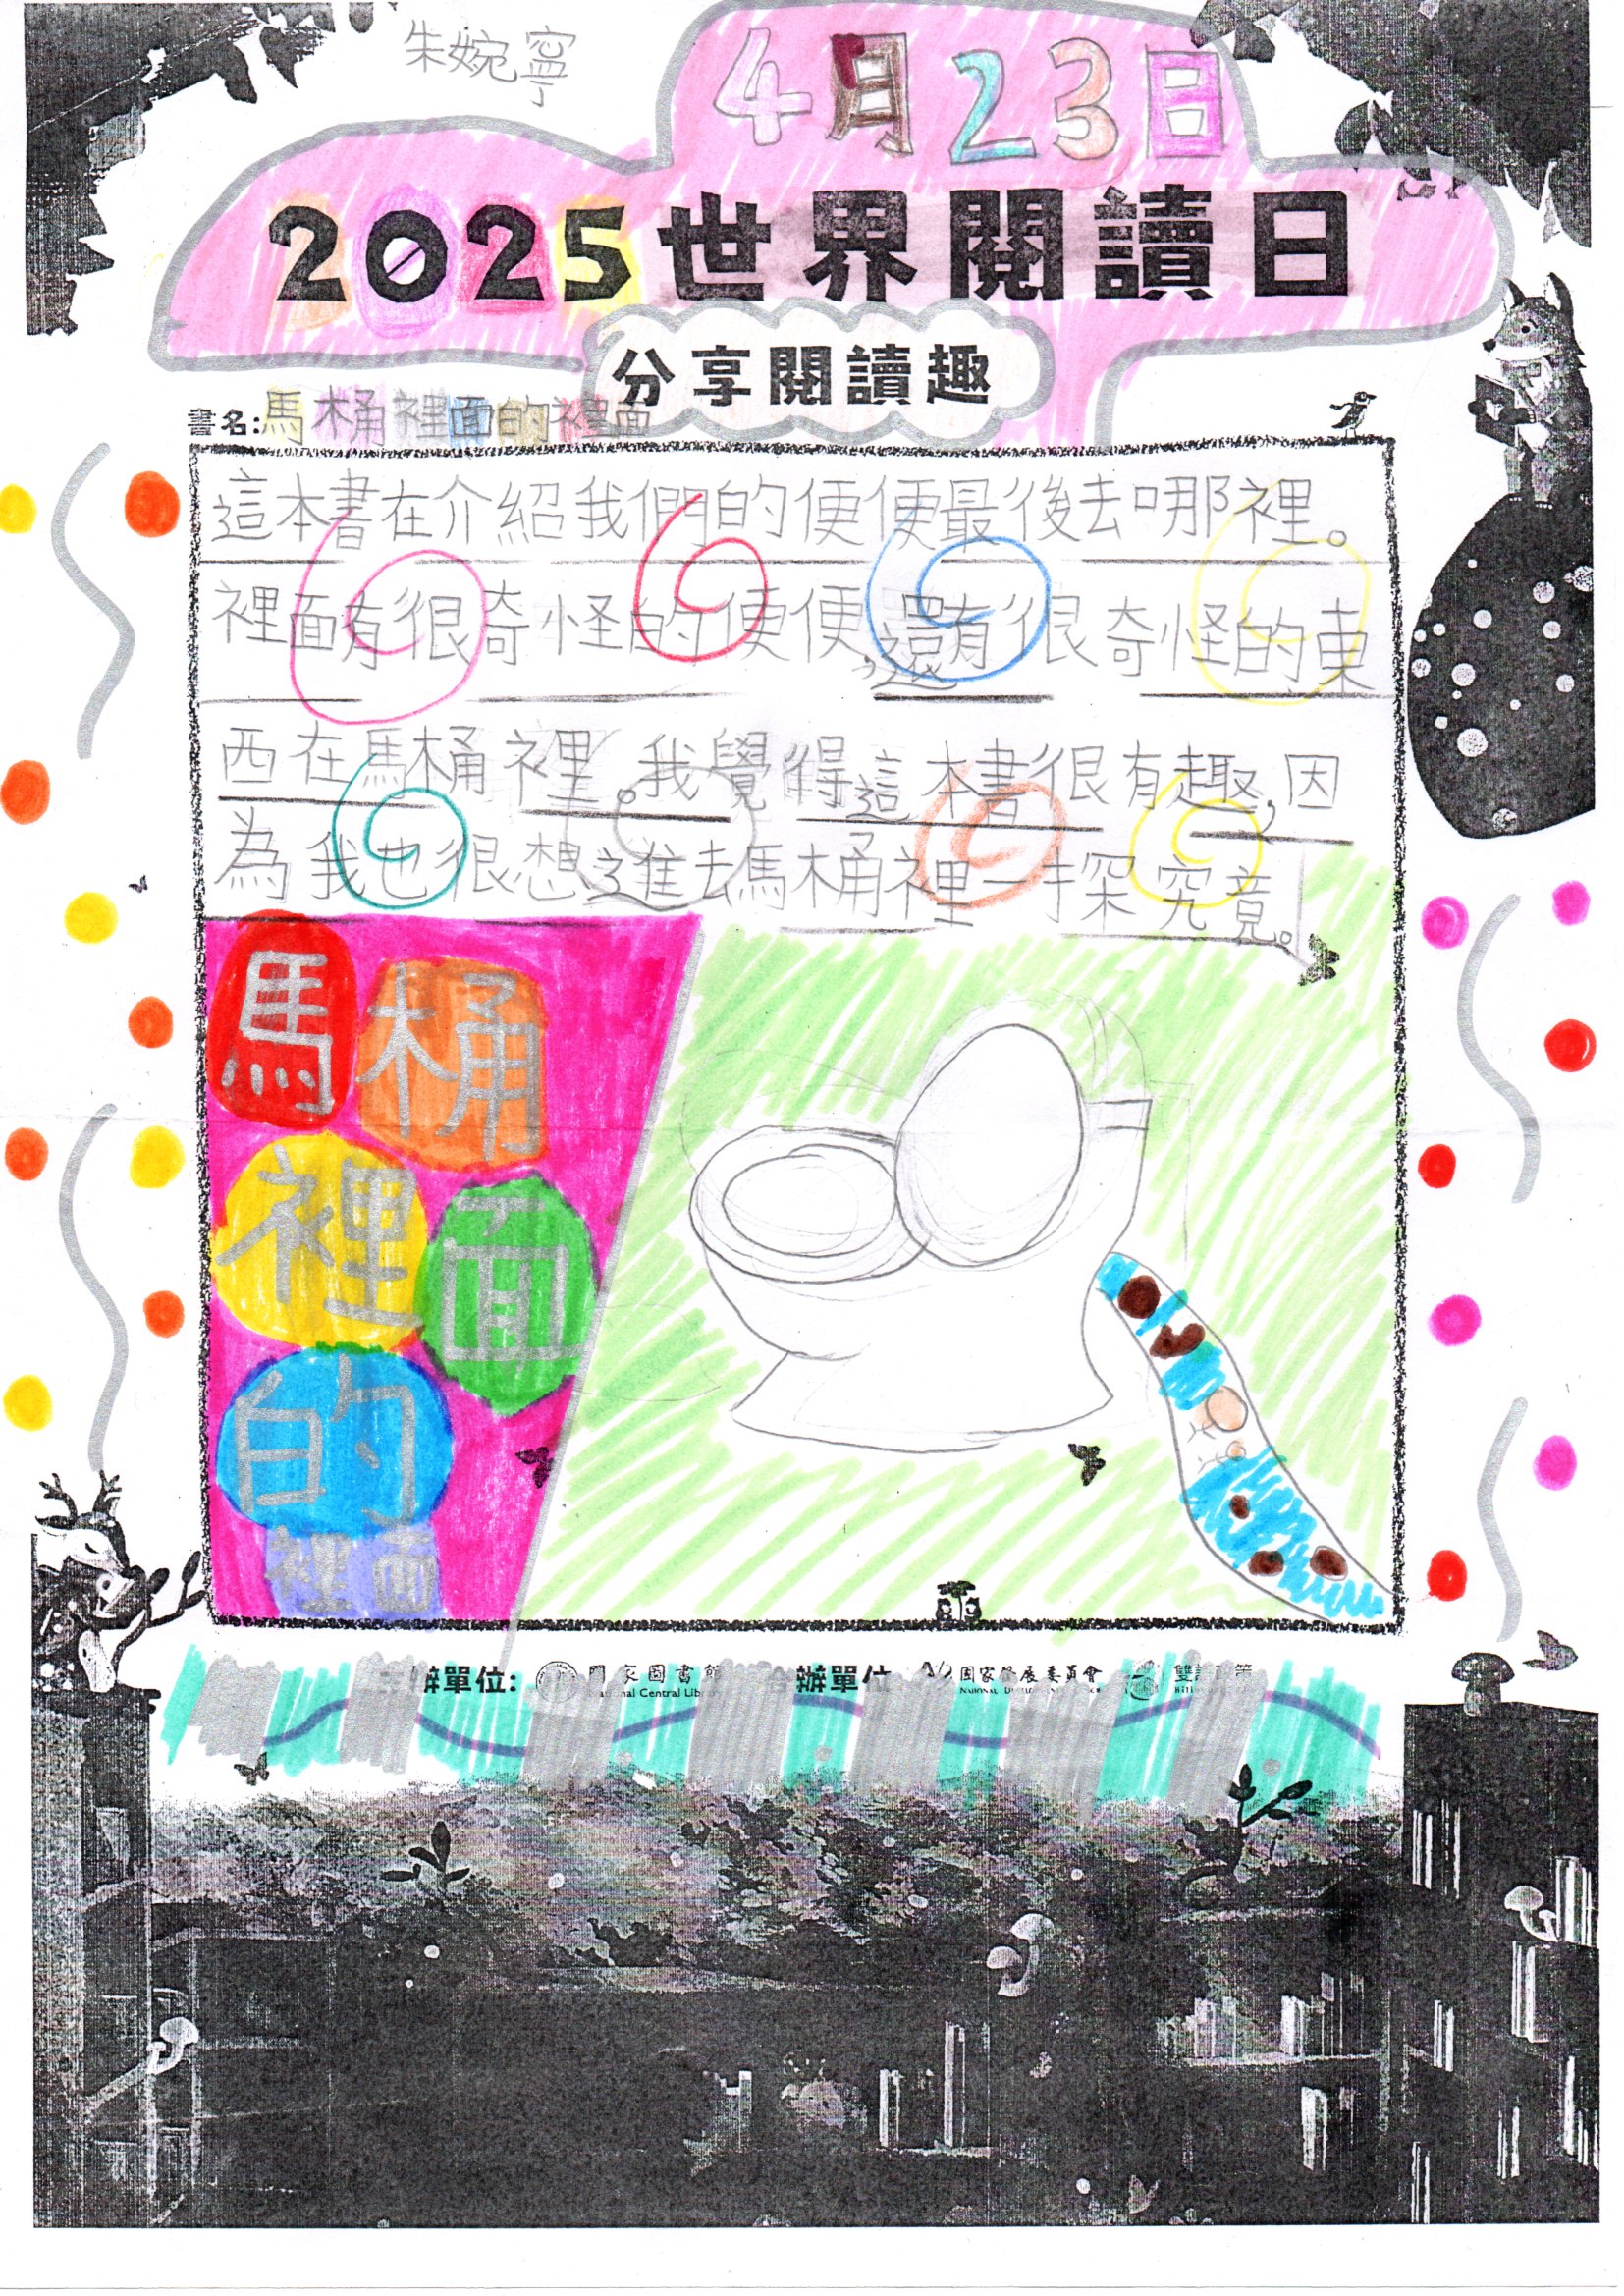 朱婉寧
4月23日
2025世界閱讀日
分享閱讀趣
書名:馬桶裡面的裡面
這本書在介紹我們的便便最後去哪裡。
裡面有很奇怪的便便,還有很奇怪的東
西在馬桶裡。我覺得這本書很有趣,因
為我也很想進去馬桶裡一探究竟。
馬桶
裡面
的
裡面
辦單位: 國家圖書館 合辦單位 國家發展委員會
National Central Library